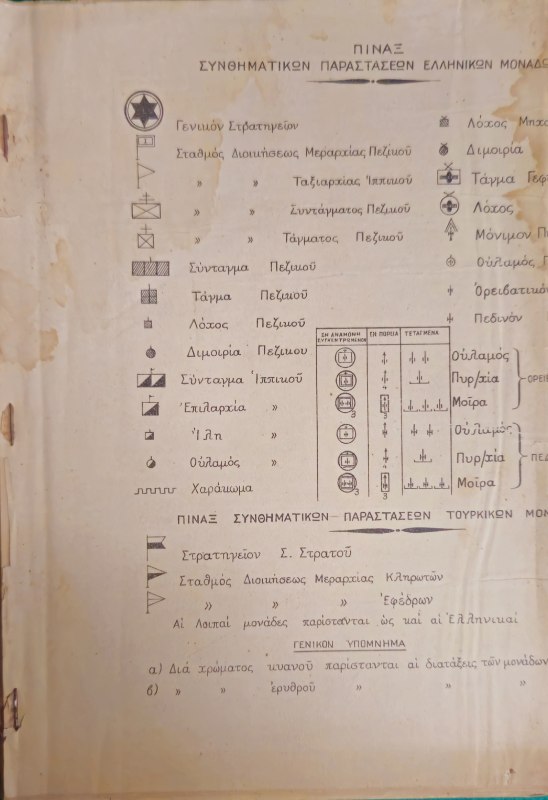 ΠΙΝΑΞ
ΣΥΝΘΗΜΑΤΙΚΩΝ ΠΑΡΑΣΤΑΣΕΩΝ ΕΛΛΗΝΙΚΩΝ ΜΟΝΑΔΩ
Γενικόν Στρατηγεῖον
Λόχος Μηχα
Σταθμός Διοικήσεως Μεραρχίας Πεζικοῦ
Διμοιρία
» » Ταξιαρχίας Ἱππικοῦ
Τάγμα Γεφ
» » Συντάγματος Πεζικοῦ
Λόχος
» » Τάγματος Πεζικοῦ
Μόνιμον
Σύνταγμα Πεζικοῦ
Οὐλαμός
Τάγμα Πεζικοῦ
Ὀρειβατικόν
Λόχος Πεζικοῦ
Πεδινόν
ΕΝ ΑΝΑΜΟΝΗ ΣΥΓΚΕΝΤΡΩΜΕΝΟΝ ΕΝ ΠΟΡΕΙΑ ΤΕΤΑΓΜΕΝΑ
Διμοιρία Πεζικου
Οὐλαμός
Σύνταγμα Ἱππικοῦ
Πυρ/χία ΟΡΕΙ
Ἐπιλαρχία »
3 3 Μοῖρα
Ἴλη »
Οὐλαμός
Οὐλαμός »
Πυρ/χία ΠΕΔ
Χαράκωμα
3 3 Μοῖρα
ΠΙΝΑΞ ΣΥΝΘΗΜΑΤΙΚΩΝ ΠΑΡΑΣΤΑΣΕΩΝ ΤΟΥΡΚΙΚΩΝ ΜΟΝ
Στρατηγεῖον Σ. Στρατοῦ
Σταθμός Διοικήσεως Μεραρχίας Κληρωτῶν
» » » Ἐφέδρων
Αἱ Λοιπαί μονάδες παρίστανται ὡς καί αἱ Ἑλληνικαί
ΓΕΝΙΚΟΝ ΥΠΟΜΝΗΜΑ
α) Διά χρώματος κυανοῦ παρίστανται αἱ διατάξεις τῶν μονάδων
β) » » ἐρυθροῦ » » »